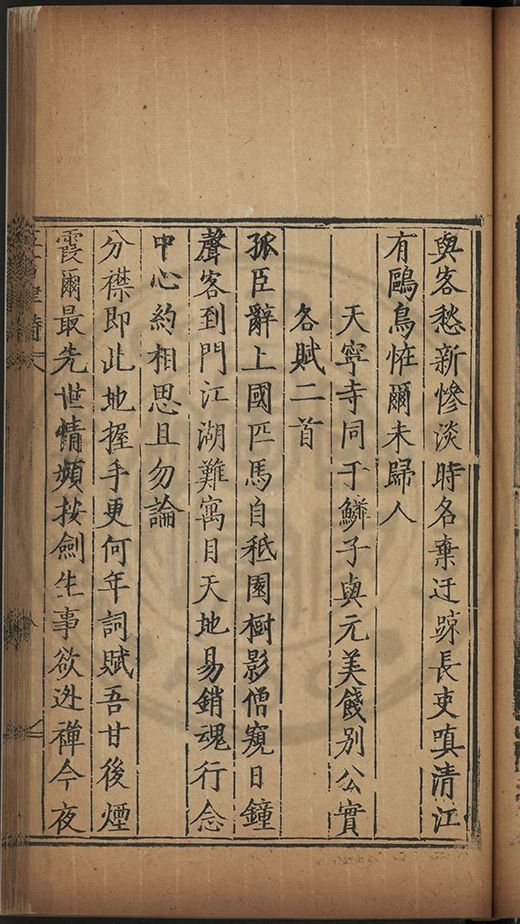 與客愁新慘淡時名棄迂踈長吏嗔清江
有鷗鳥恠爾未歸人
天寧寺同于鱗子與元美餞別公實
各賦二首
孤臣辭上國匹馬自秪園樹影僧窺日鐘
聲客到門江湖難寓目天地易銷魂行念
中心約相思且勿論
分襟即此地握手更何年詞賦吾甘後煙
霞爾最先世情頻按劍生事欲逃禪今夜